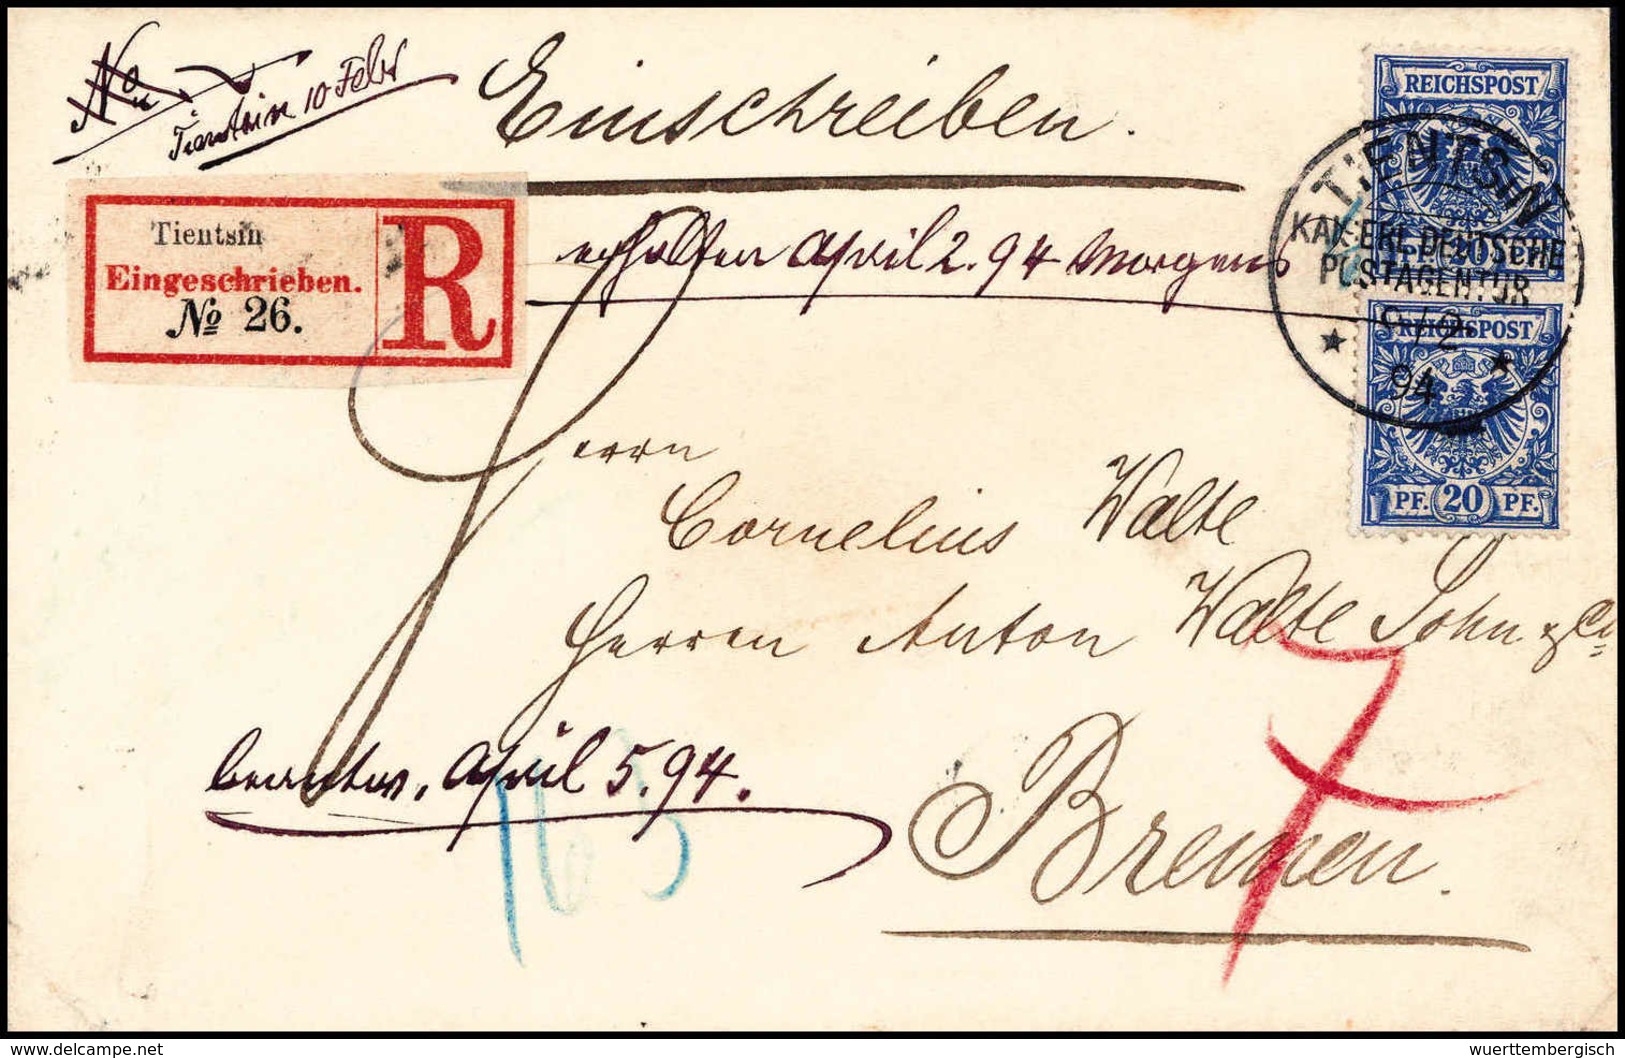 No
Tientsin 10 Febr
Einschreiben.
Tientsin
Eingeschrieben.
No 26.
R
erhalten April 2. 94 Morgens
REICHSPOST
PF. 20 PF.
TIENTSIN
KAISERL. DEUTSCHE
POSTAGENTUR
/2
94
REICHSPOST
PF. 20 PF.
Herrn
Cornelius Walte
Herren Anton Walte Sohn & Co
Bremen.
beantw. April 5. 94.
7
delcampe.net
wuerttembergisch